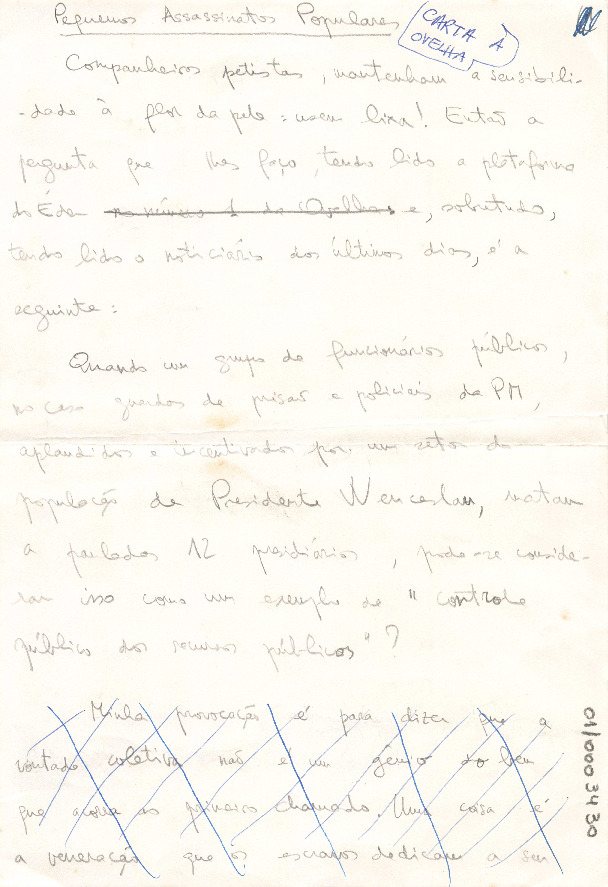 Pequenos Assassinatos Populares
CARTA À
OVELHA
Companheiros petistas, mantenham a sensibili-
-dade à flor da pele: usem lixa! Então a
pergunta que lhes faço, tendo lido a plataforma
do Éden no número 1 da Ovelha e, sobretudo,
tendo lido o noticiário dos últimos dias, é a
seguinte:
Quando um grupo de funcionários públicos,
no caso guardas de prisão e policiais da PM,
aplaudidos e incentivados por um setor da
população de Presidente Wenceslau, matam
a pauladas 12 presidiários, pode-se conside-
rar isso como um exemplo de "controle
público dos recursos públicos"?
Minha provocação é para dizer que a
vontade coletiva não é um gênio do bem
que acorra ao primeiro chamado. Uma coisa é
a veneração que os escravos dedicam a seu
01/000 34 30